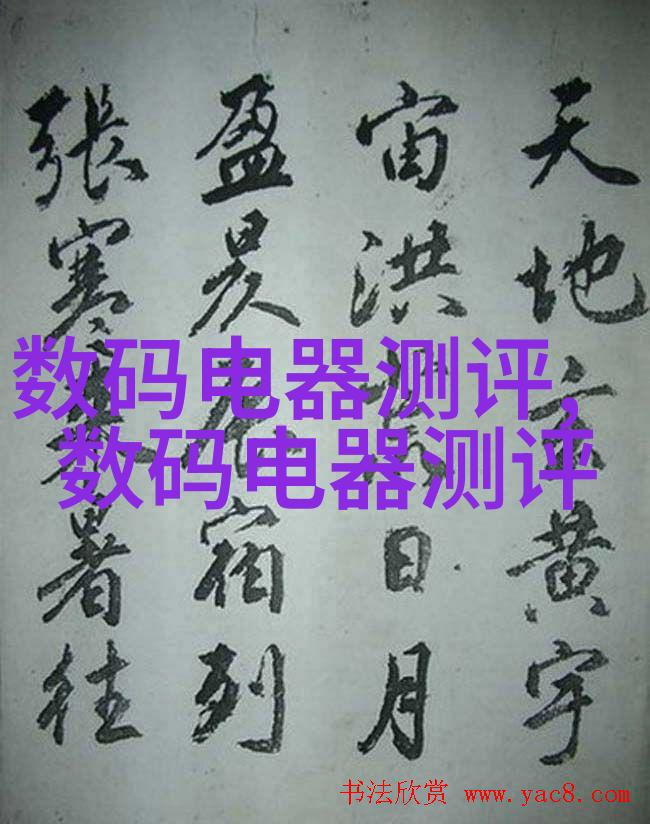 天地玄黄宇
宙洪荒日月
盈昃辰宿列
張寒來暑往
数码电器测评,
数码电器测评
书法欣赏 www.yac8.com